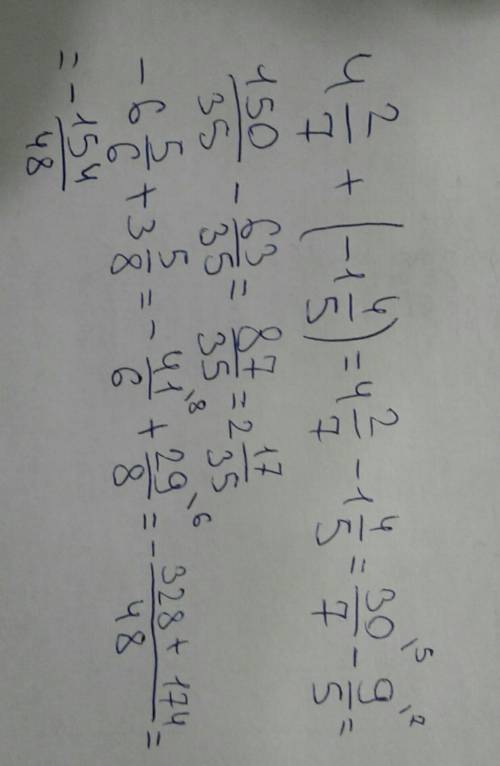 4 2/7 + (-1 4/5) = 4 2/7 - 1 4/5 = 30/7 \5 - 9/5 \7 =
150/35 - 63/35 = 87/35 = 2 17/35
- 6 5/6 + 3 5/8 = - 41/6 \8 + 29/8 \6 = - 328 + 174/48 =
= - 154/48